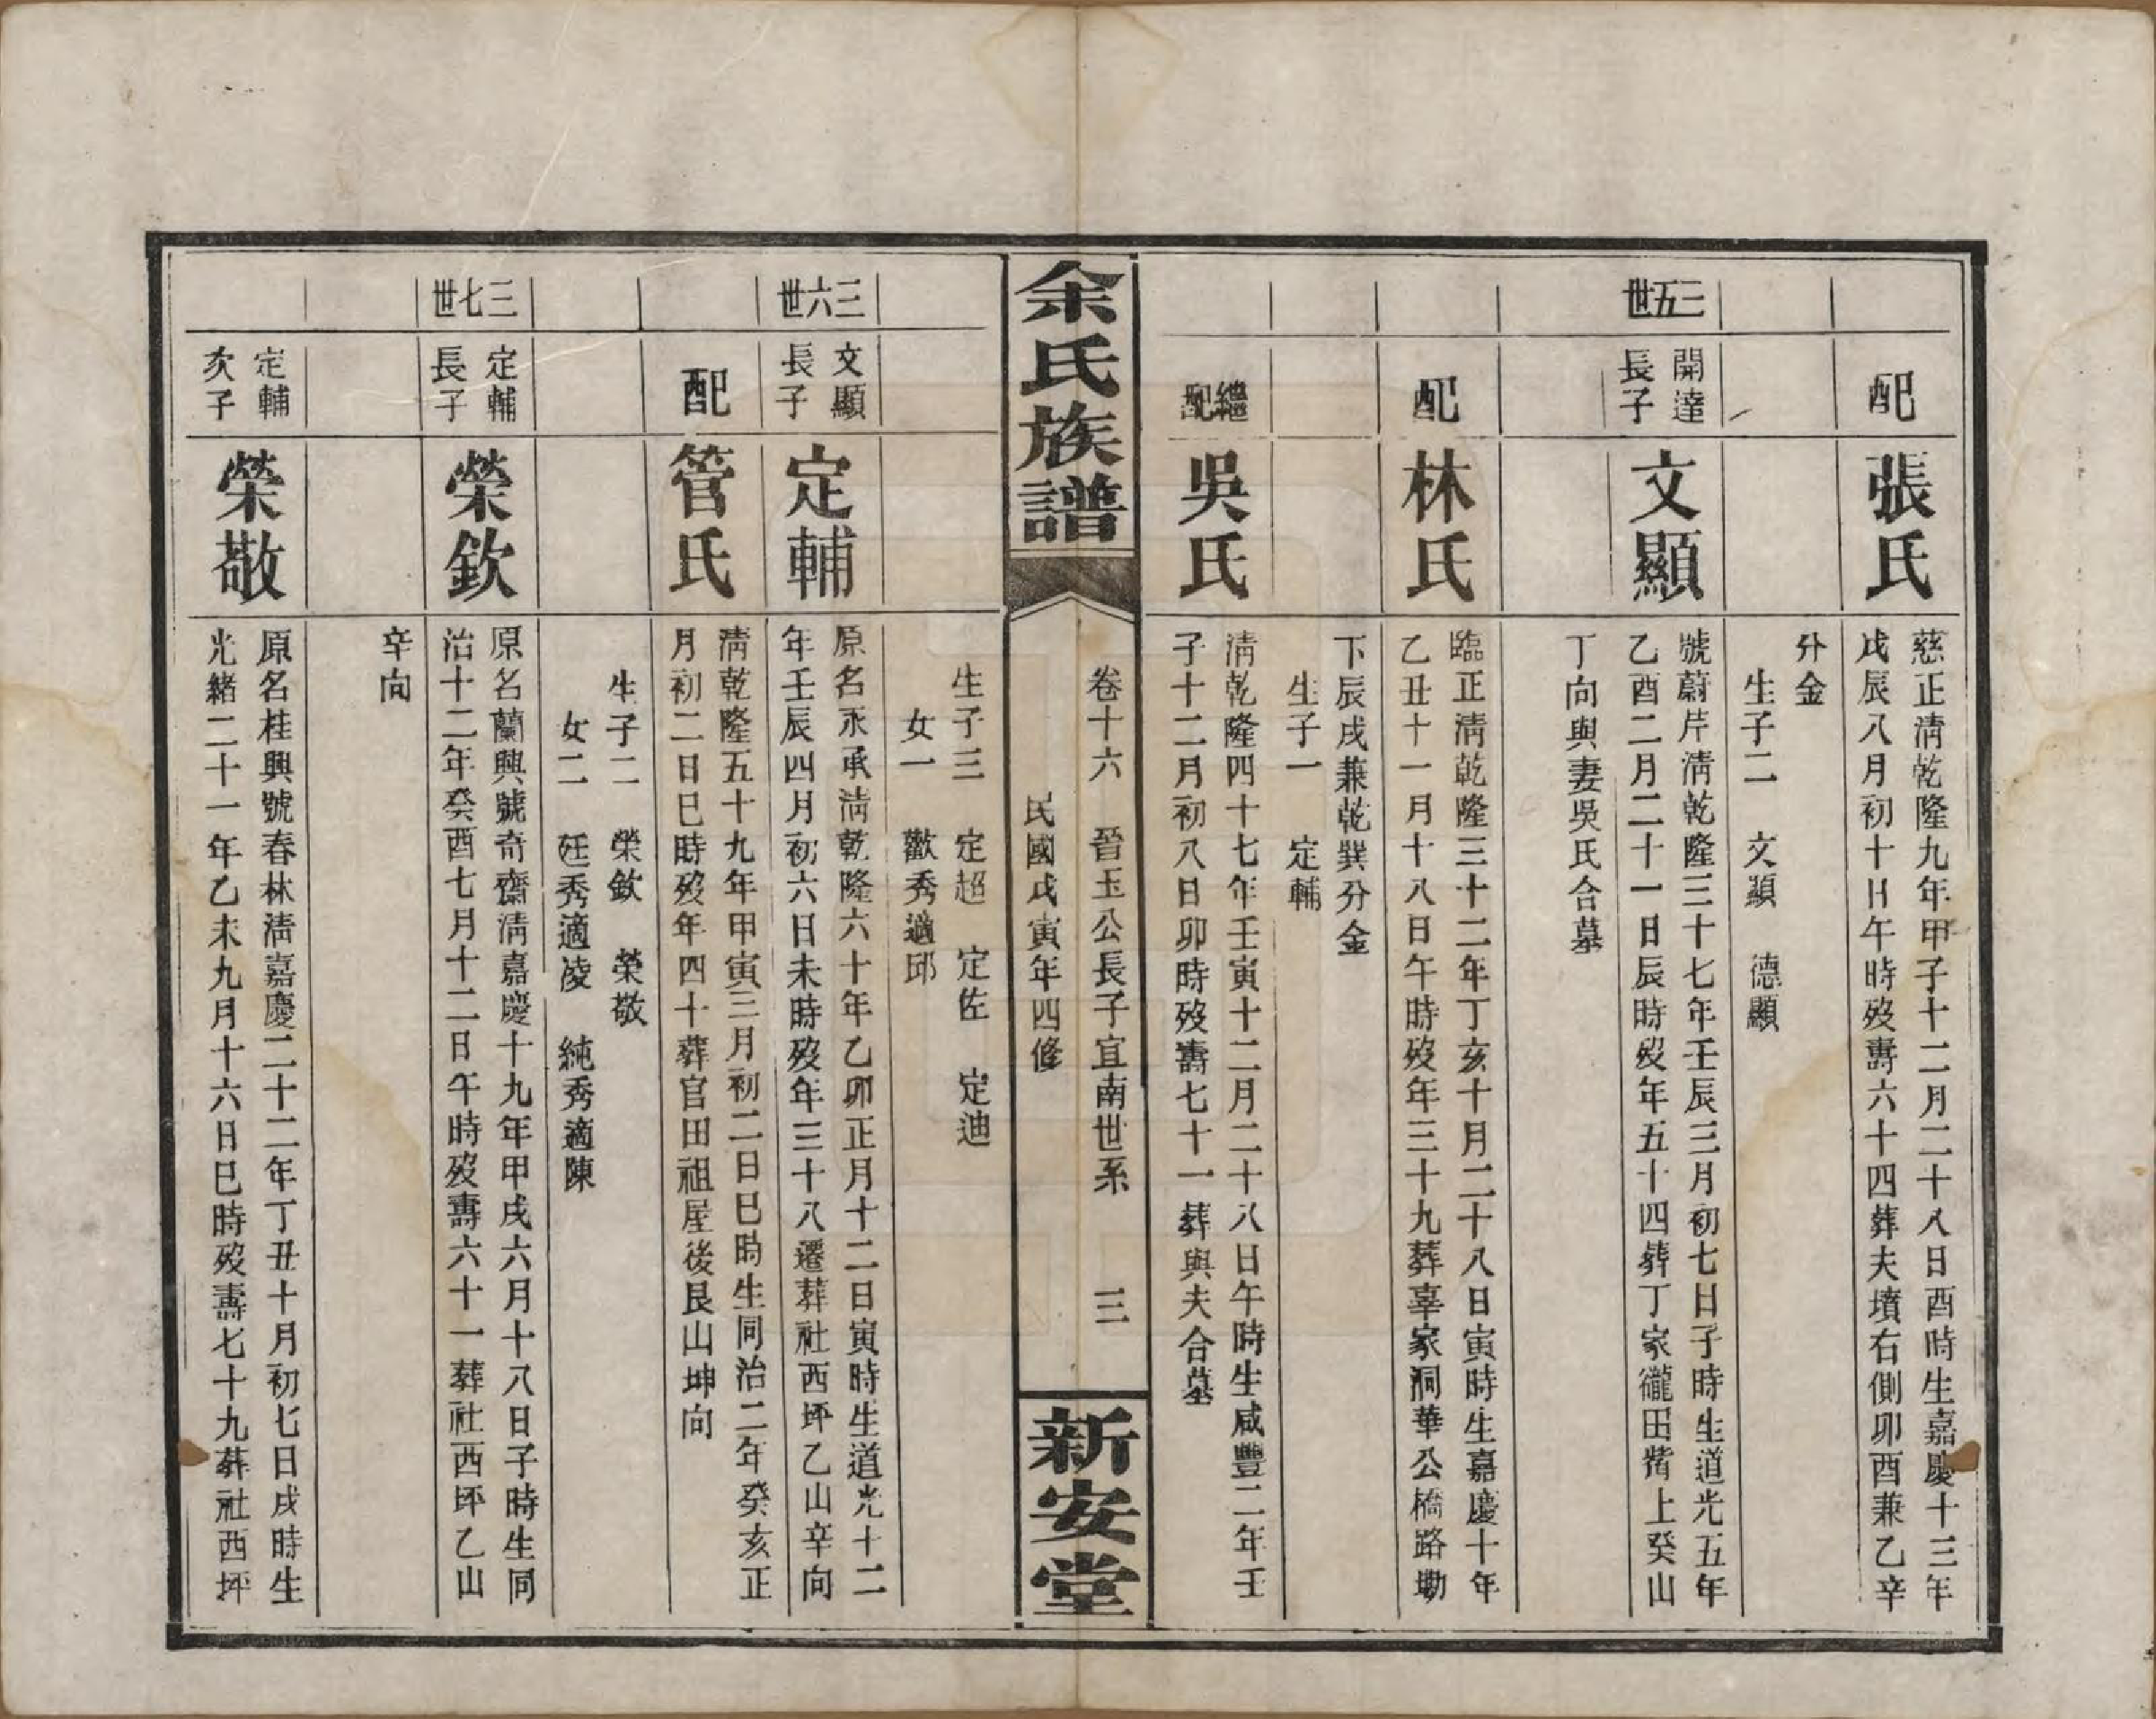 配
張氏
慈正淸乾隆九年甲子十二月二十八日酉時生嘉慶十三年
戊辰八月初十日午時歿壽六十四葬夫墳右側卯酉兼乙辛
分金
生子二　文顯　德顯
三五世
開達
長子
文顯
號蔚芹淸乾隆三十七年壬辰三月初七日子時生道光五年
乙酉二月二十一日辰時歿年五十四葬丁家衖田上癸山
丁向與妻吳氏合墓
配
林氏
臨正淸乾隆三十二年丁亥十月二十八日寅時生嘉慶十年
乙丑十一月十八日午時歿年三十九葬辜家洞華公橋路坳
下辰戌兼乾巽分金
生子一　定輔
繼配
吳氏
淸乾隆四十七年壬寅十二月二十八日午時生咸豐二年壬
子十二月初八日卯時歿壽七十一葬與夫合墓
余氏族譜
卷十六　晉玉公長子宜南世系　三
民國戊寅年四修
新安堂
生子三　定超　定佐　定迪
女一　歡秀適邱
三六世
文顯
長子
定輔
原名永承淸乾隆六十年乙卯正月十二日寅時生道光十二
年壬辰四月初六日未時歿年三十八遷葬社西坪乙山辛向
配
管氏
淸乾隆五十九年甲寅三月初二日巳時生同治二年癸亥正
月初二日巳時歿年四十葬官田祖屋後艮山坤向
生子二　榮欽　榮敬
女二　廷秀適凌　純秀適陳
三七世
定輔
長子
榮欽
原名蘭興號奇齋淸嘉慶十九年甲戌六月十八日子時生同
治十二年癸酉七月十二日午時歿壽六十一葬社西坪乙山
辛向
定輔
次子
榮敬
原名桂興號春林淸嘉慶二十二年丁丑十月初七日戌時生
光緒二十一年乙未九月十六日巳時歿壽七十九葬社西坪